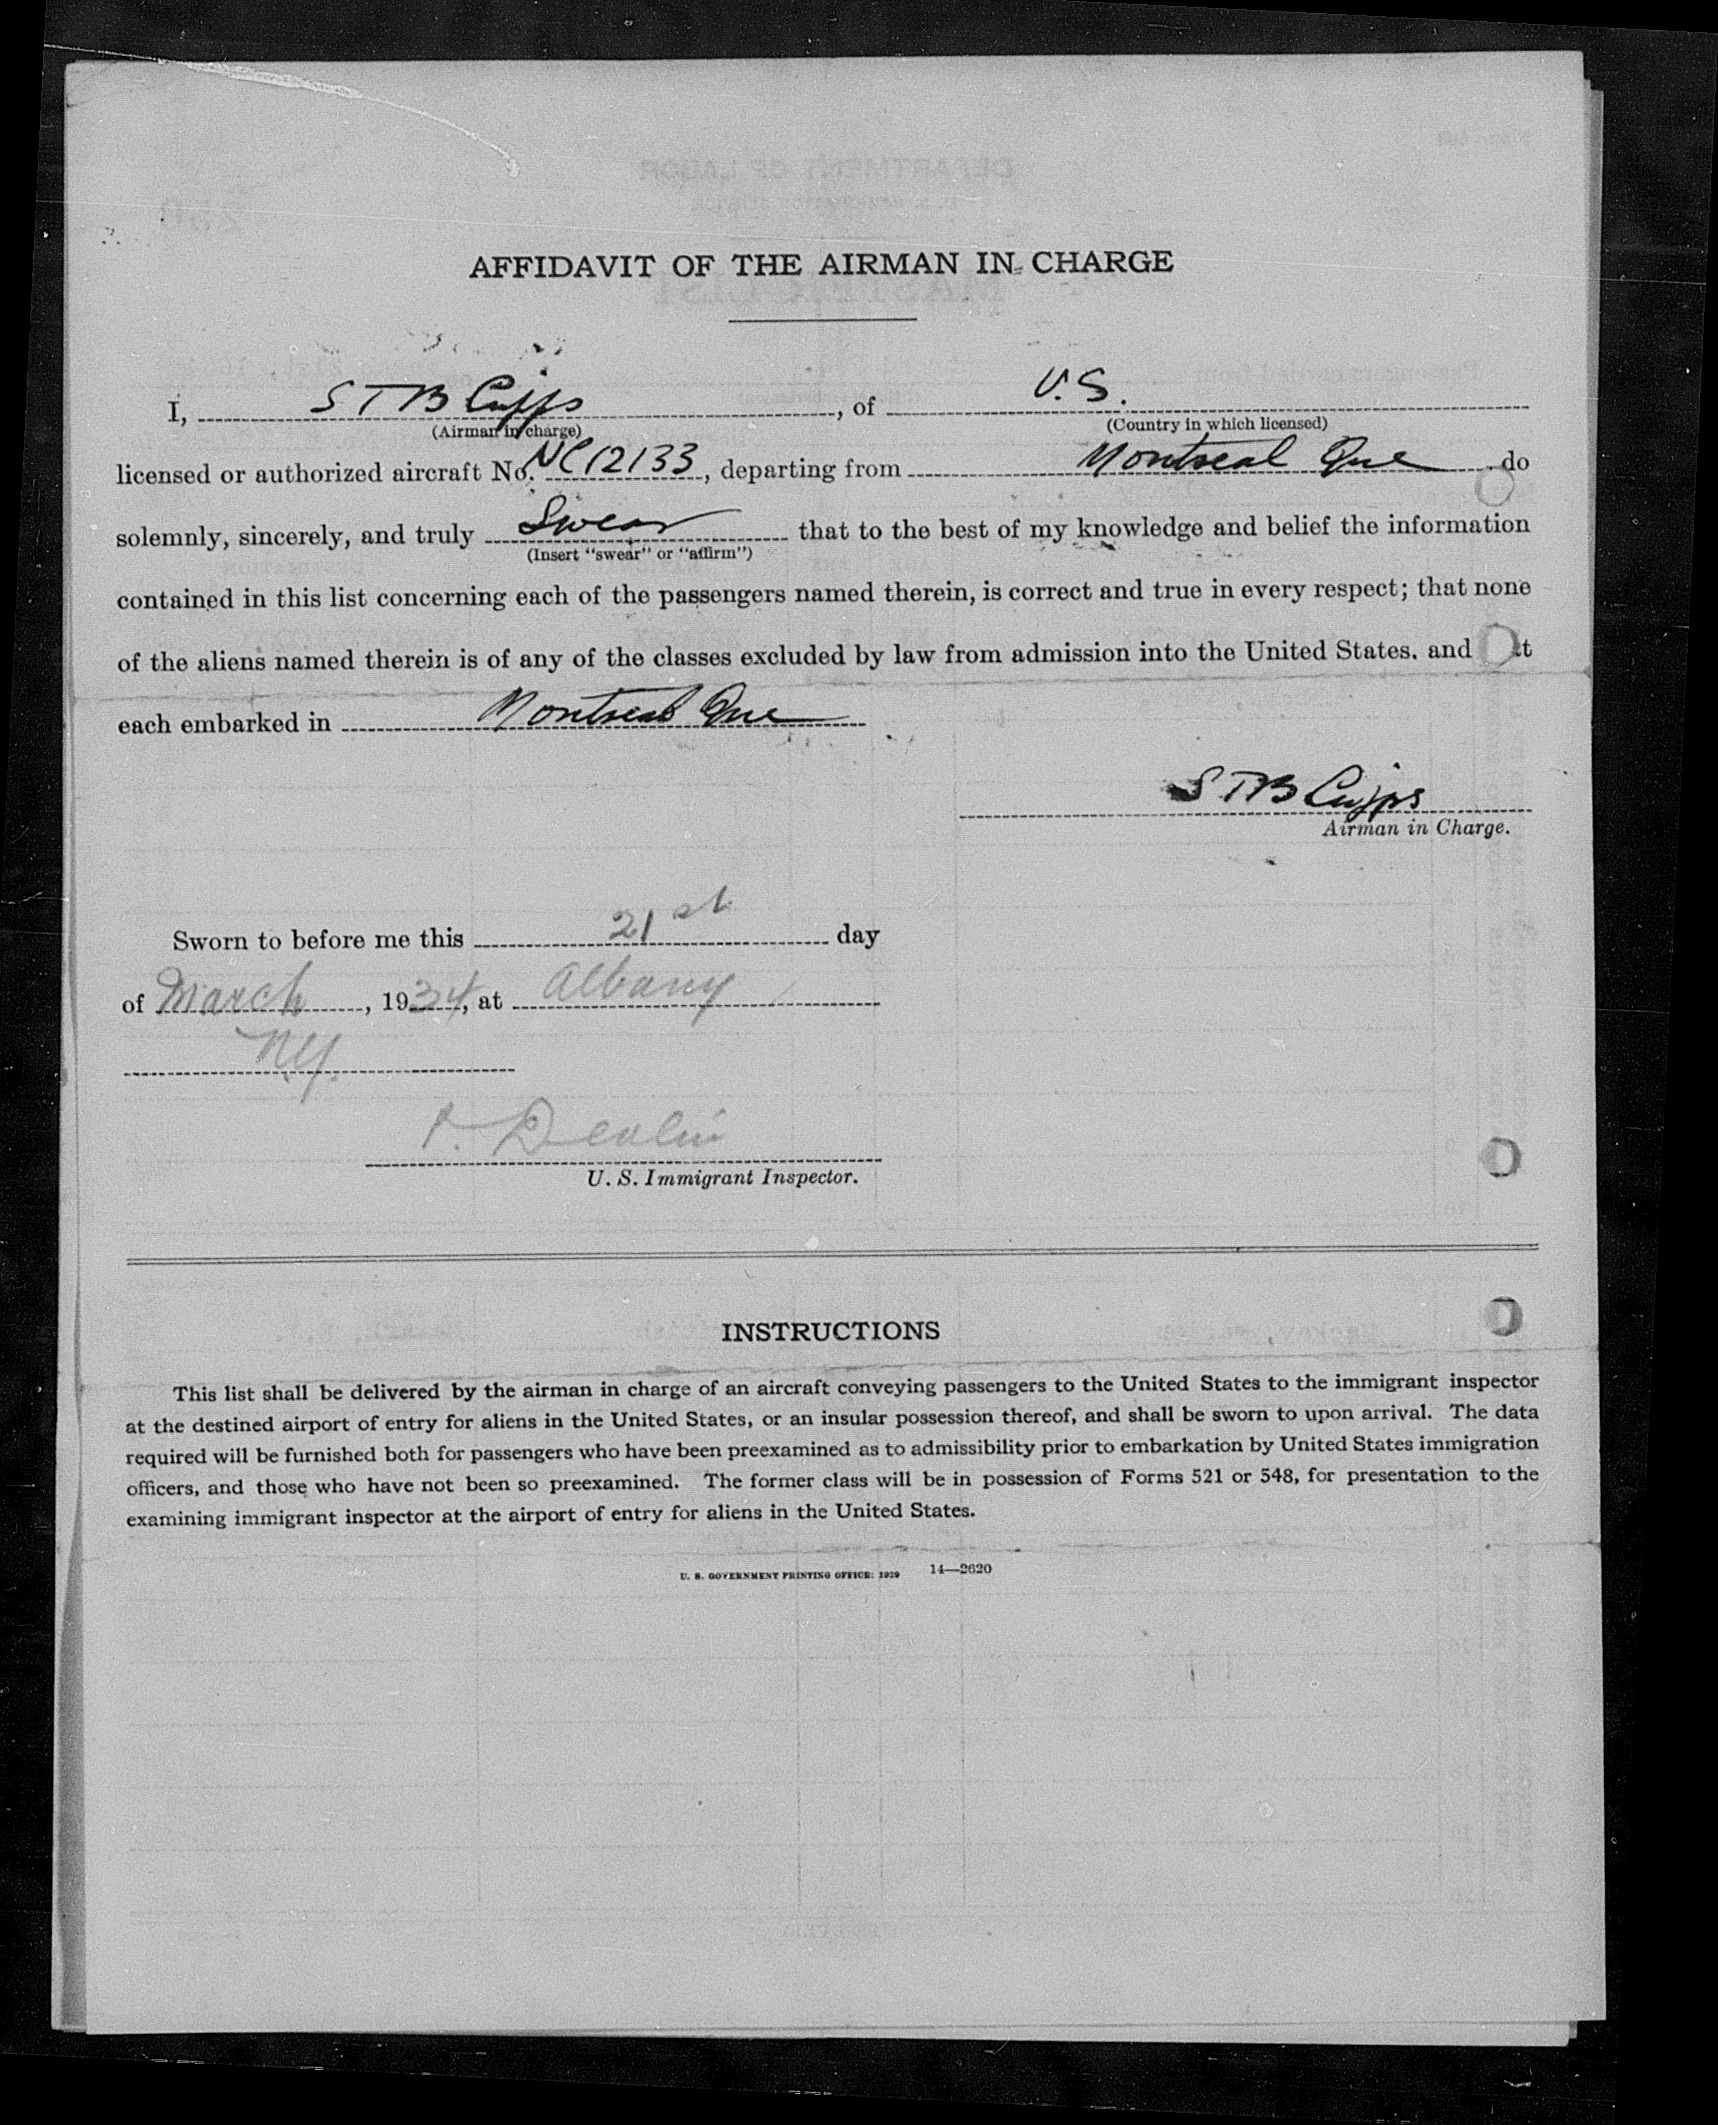 AFFIDAVIT OF THE AIRMAN IN CHARGE
I, S T B Cripps, of U.S.
(Airman in charge) (Country in which licensed)
licensed or authorized aircraft No. NC12133, departing from Montreal Que do
solemnly, sincerely, and truly Swear that to the best of my knowledge and belief the information
(Insert "swear" or "affirm")
contained in this list concerning each of the passengers named therein, is correct and true in every respect; that none
of the aliens named therein is of any of the classes excluded by law from admission into the United States. and
each embarked in Montreal Que
S T B Cripps
Airman in Charge.
Sworn to before me this 21st day
of March, 1934, at Albany
N.Y.
P. Devlin
U. S. Immigrant Inspector.
INSTRUCTIONS
This list shall be delivered by the airman in charge of an aircraft conveying passengers to the United States to the immigrant inspector
at the destined airport of entry for aliens in the United States, or an insular possession thereof, and shall be sworn to upon arrival. The data
required will be furnished both for passengers who have been preexamined as to admissibility prior to embarkation by United States immigration
officers, and those who have not been so preexamined. The former class will be in possession of Forms 521 or 548, for presentation to the
examining immigrant inspector at the airport of entry for aliens in the United States.
U. S. GOVERNMENT PRINTING OFFICE: 1929 14—2620